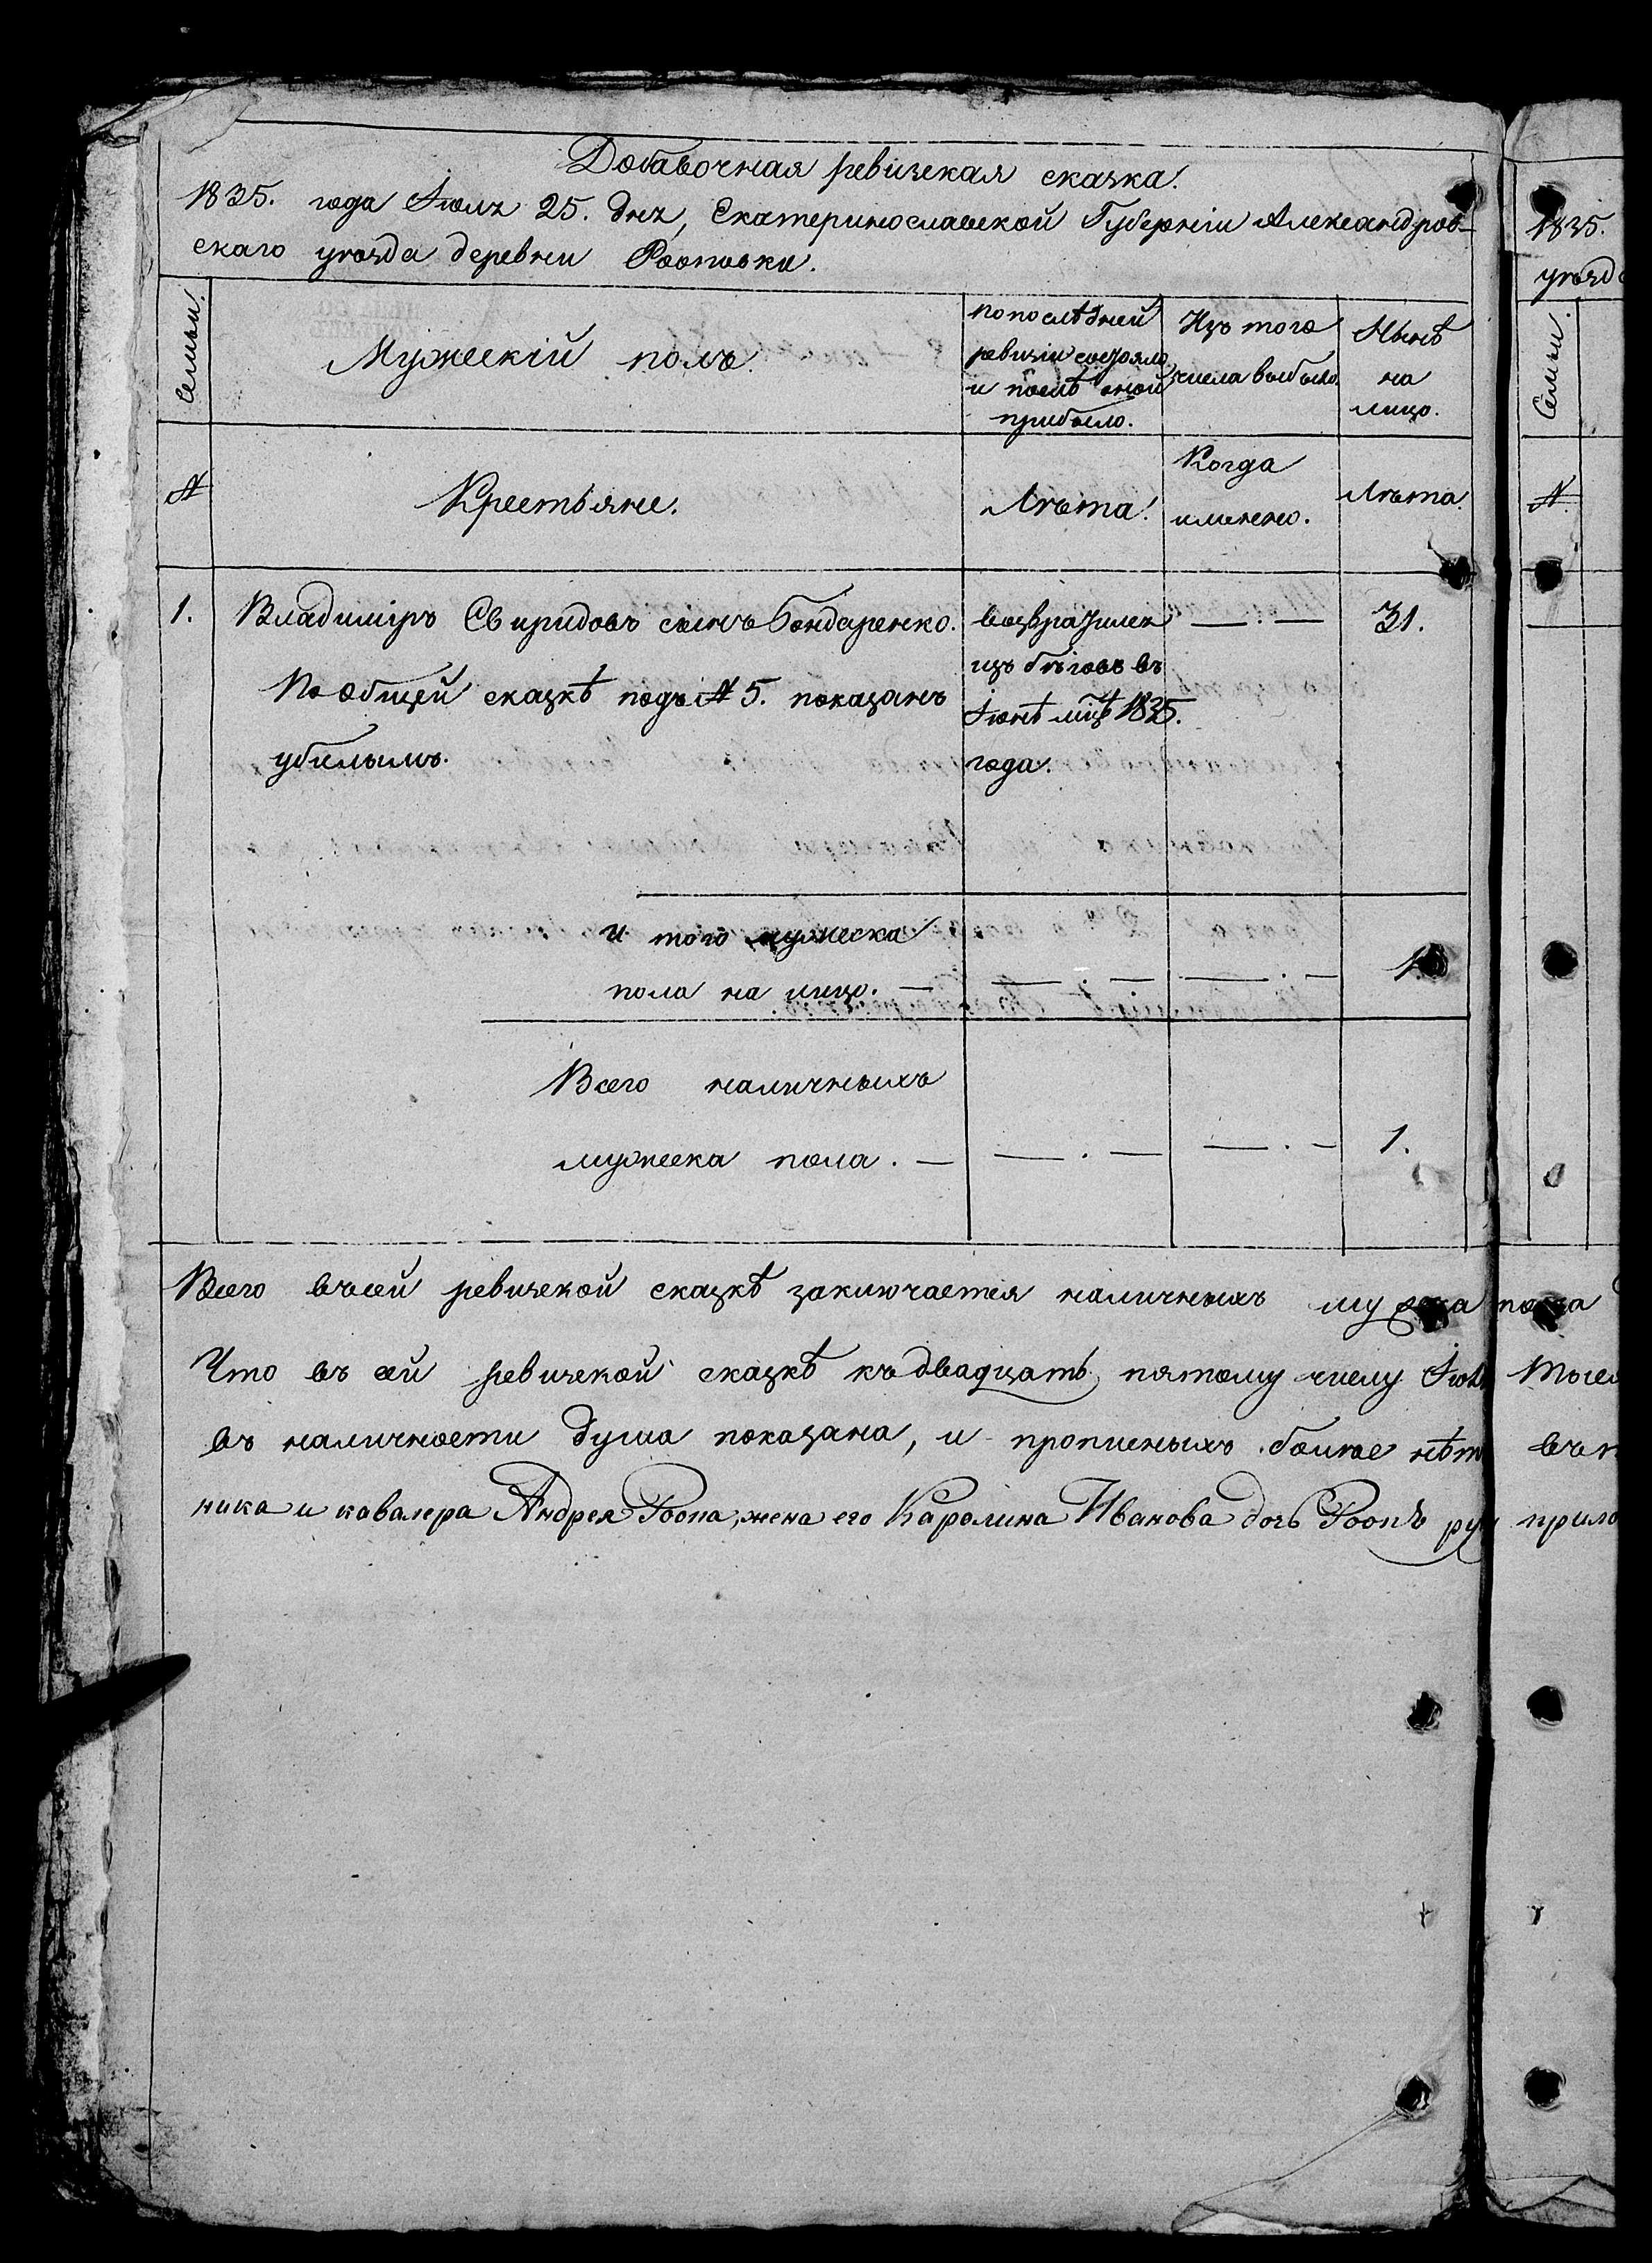 Добавочная ревизская сказка.
1835. года Іюля 25. дня, Екатеринославской Губерніи Александров-
скаго уѣзда деревни Рооповки.
Семьи.
Мужескій полъ.
по послѣдней
ревизіи состояло
и послѣ оной
прибыло.
Изъ того
числа выбыло.
Нынѣ
на
лицо.
№
Крестьяне.
Лѣта.
Когда
именно.
Лѣта.
1. Владиміръ Свиридовъ сынъ Бондаренко.
По общей сказкѣ подъ № 5. показанъ
убылымъ.
возвратился
изъ бѣговъ въ
Іюнѣ мцѣ 1835.
года.
— . —
31.
и того мужеска
пола на лицо. — — . — — . — 1.
Всего наличныхъ
мужеска пола. — — . — — . — 1.
Всего въ сей ревизской сказкѣ заключается наличныхъ мужеска пола
Что въ сей ревизской сказкѣ къ двадцать пятому числу Іюля
въ наличности душа показана, и прописныхъ болѣе нѣтъ
ника и кавалера Андрея Роопа, жена его Каролина Иванова дочь Роопъ ру
1835.
уѣзда
Семьи.
№.
прило